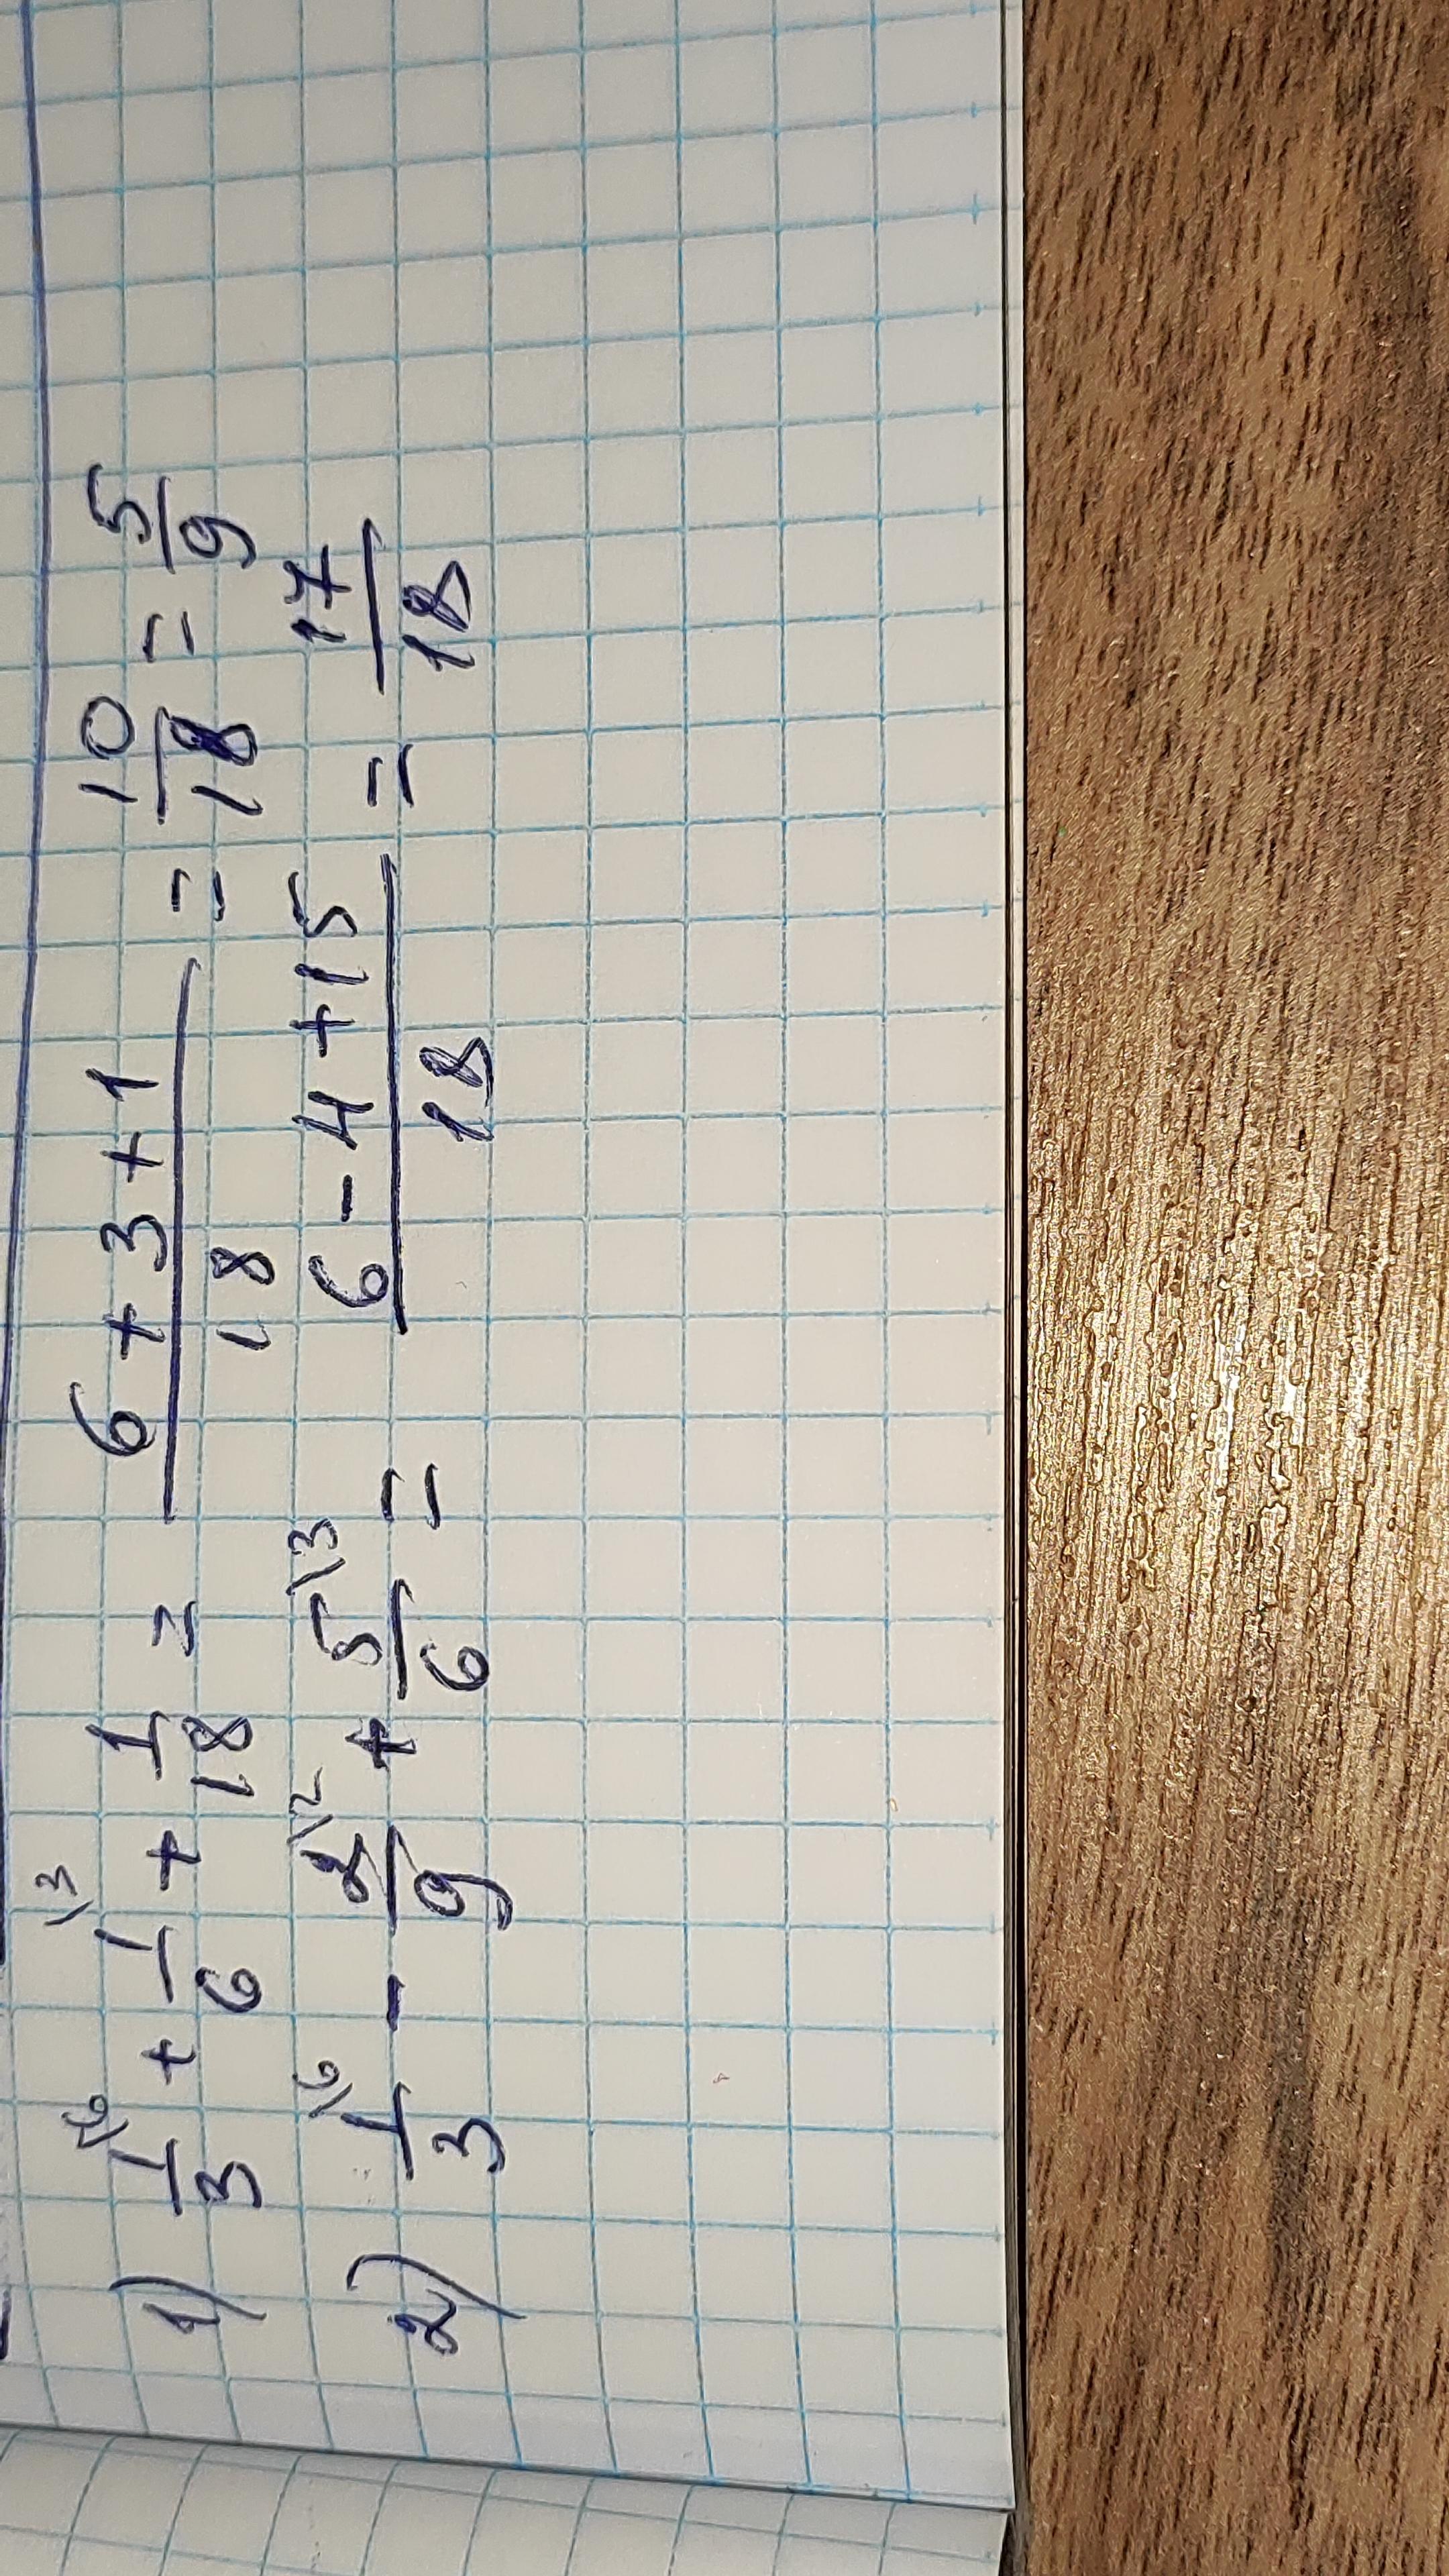 1) 1/3\6 + 1/6\3 + 1/18 = (6 + 3 + 1)/18 = 10/18 = 5/9
2) 1/3\6 - 2/9\2 + 5/6\3 = (6 - 4 + 15)/18 = 17/18